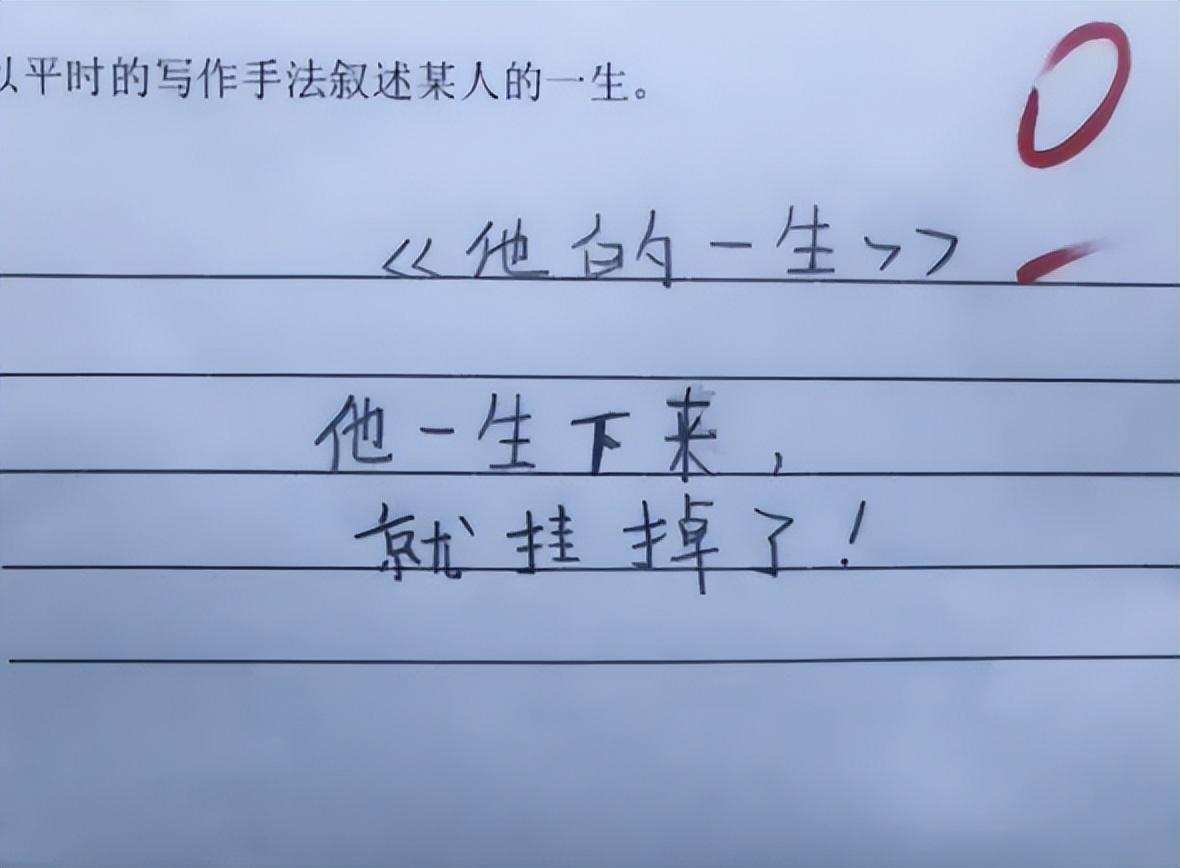 以平时的写作手法叙述某人的一生。
0
《他的一生》
他一生下来,
就挂掉了!